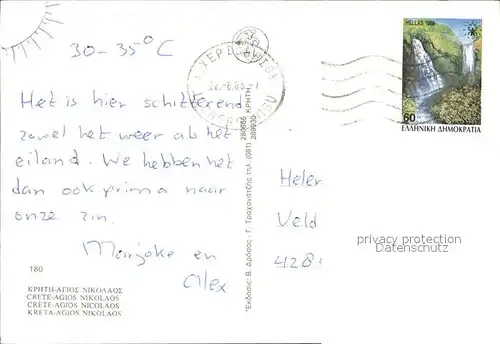 30-35° C
Het is hier schitterend
zowel het weer als het
eiland. We hebben het
dan ook prima naar
onze zin.
Marjoke en
Alex
180
ΚΡΗΤΗ-ΑΓΙΟΣ ΝΙΚΟΛΑΟΣ
CRETE-AGIOS NIKOLAOS
CRETE-AGIOS NICOLAOS
KRETA-AGIOS NIKOLAOS
Έκδοσεις: Β. Δρόσος - Γ. Τραχανατζής τηλ. (081)
280686 ΚΡΗΤΗ
289930
HELLAS 1988
60
ΕΛΛΗΝΙΚΗ ΔΗΜΟΚΡΑΤΙΑ
Helen
Veld
428
privacy protection
Datenschutz